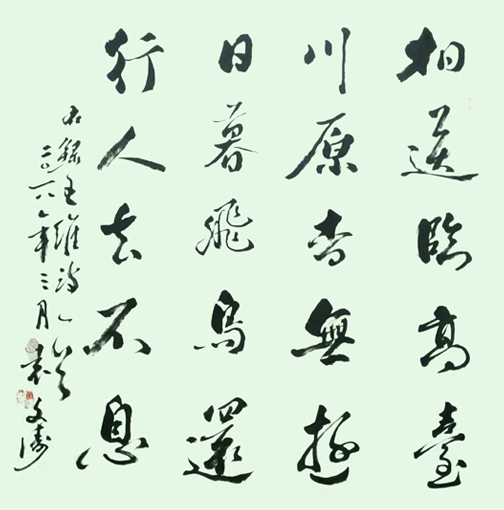 相送臨高臺
川原杳無極
日暮飛鳥還
行人去不息
右錄王維詩一首
年三月
文濤